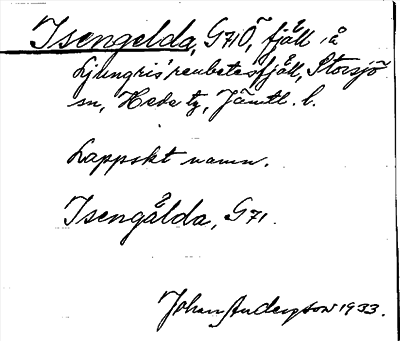 Isengelda, G71Ö, fjäll å
Ljungris' renbetesfjäll, Storsjö
sn, Hede tg, Jämtl. l.
Lappskt namn.
Isengålda, G71.
Johan Anderson 1933.